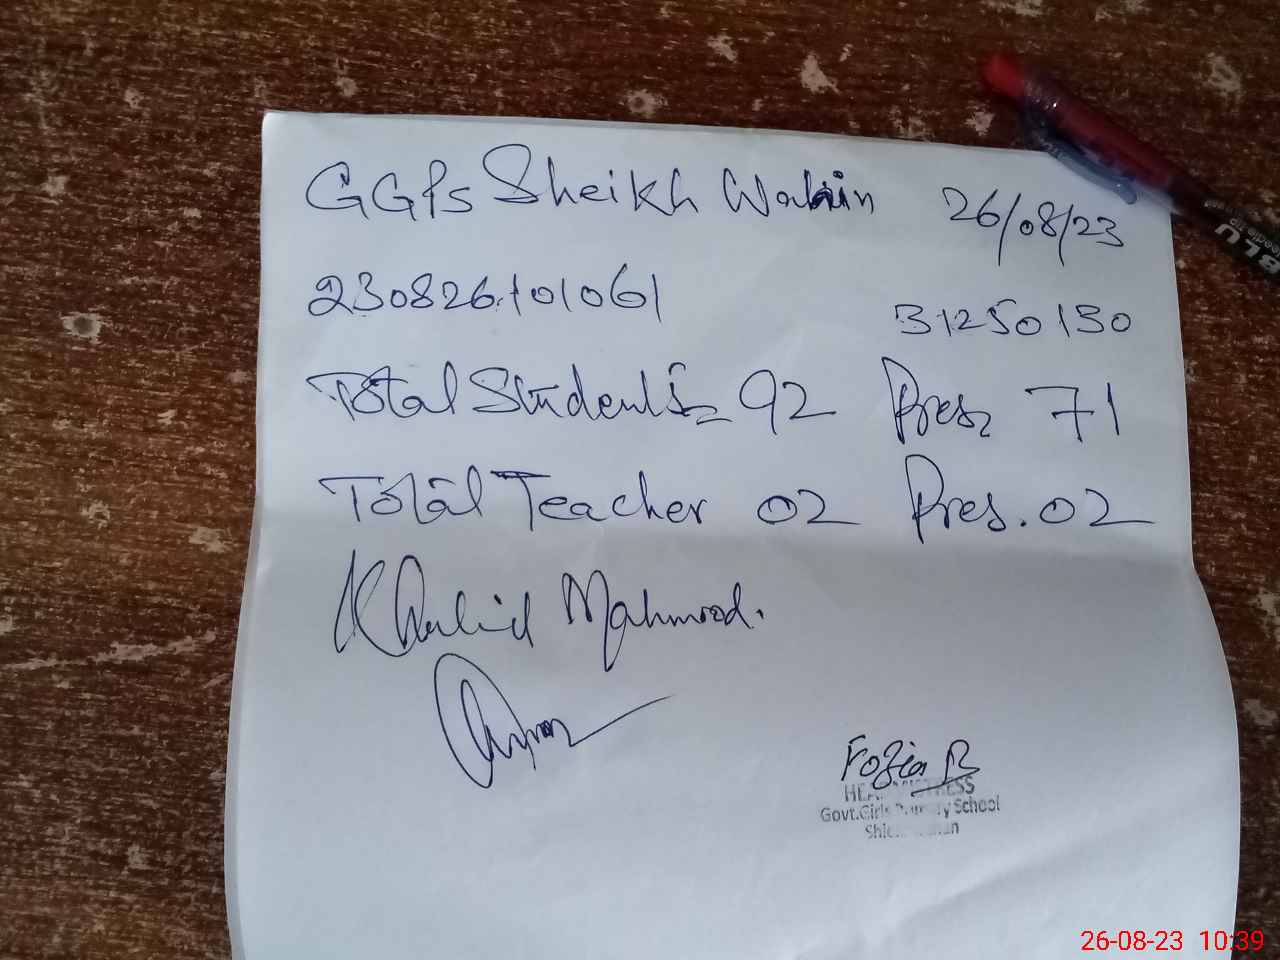 GGPS Sheikh Wahin 26/08/23
230826101061 31250130
Total Students = 92 Pres, 71
Total Teacher 02 Pres. 02
Khalid Mahmood.
Fozia B
HEADMISTRESS
Govt.Girls Primary School
BLU
26-08-23 10:39